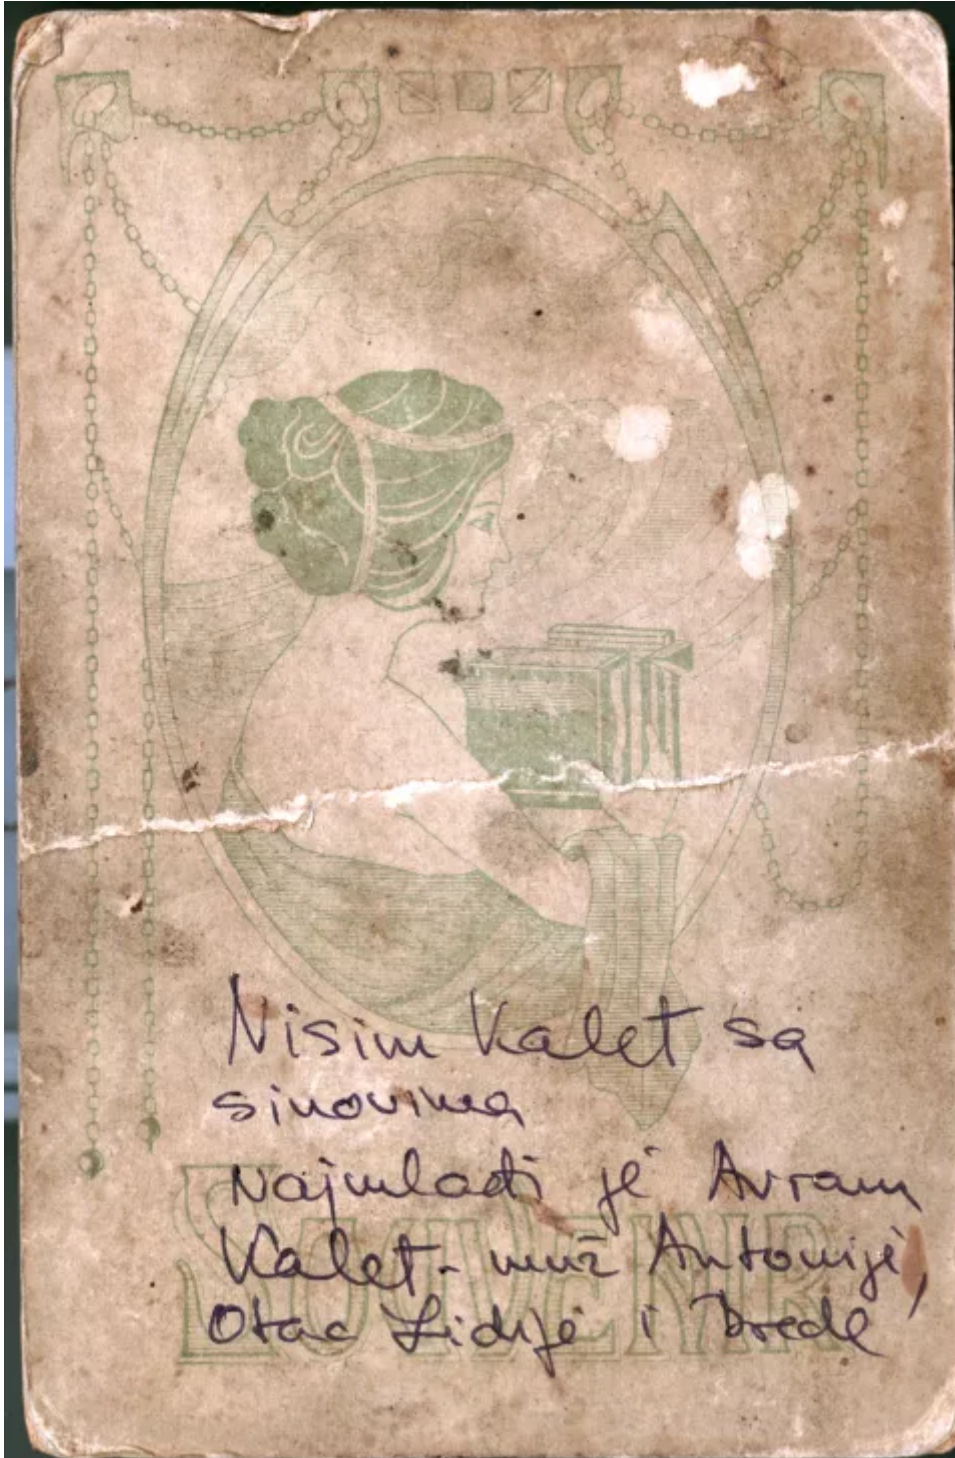 Nisim Kalet sa
sinovima
Najmlađi je Avram
Kalet - muž Antonije,
Otac Lidije i Brede
SOUVENIR